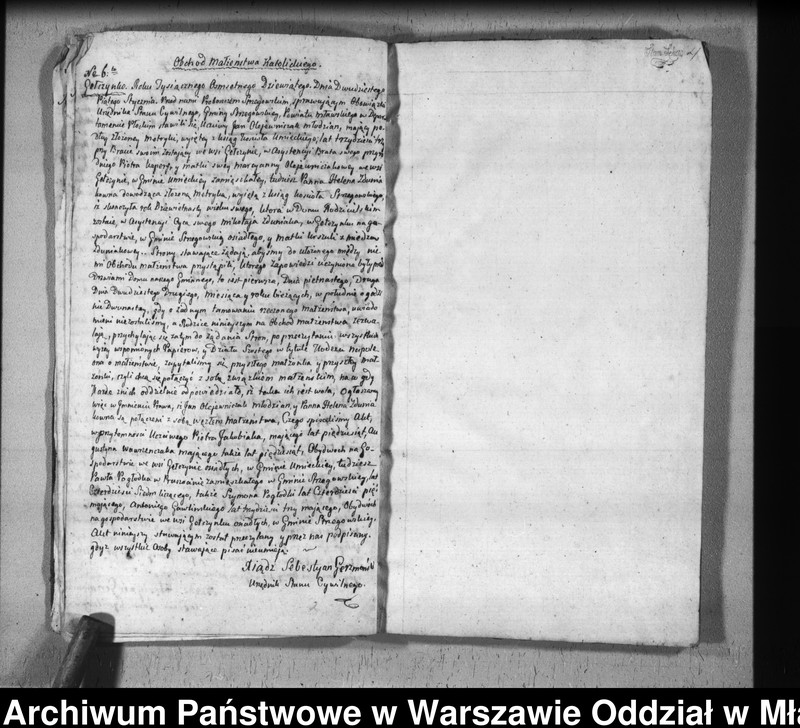 Obchod Małżeństwa Katolickiego.
No 6.
Gołczynko. Roku Tysiącznego Osmsetnego Dziewiątego. Dnia Dwudziestego
Piątego Stycznia. Przed nami Proboszczem Strzegowskim, sprawującym Obowiązki
Urzędnika Stanu Cywilnego, Gminy Strzegowskiej, Powiatu Mławskiego w Depar-
tamencie Płockim stawili się, Uczciwy Jan Olejewniczak młodzian, mający po-
dług złożoney Metryki, wyjętey z ksiąg Kościoła Unieckiego, lat trzydzieści trzy
przy Bracie swoim zostający we wsi, w Asystencyi Brata swego
Piotra y Matki swey Maryanny Olejewniczakowy, we wsi
w Gminie Unieckiey zamieszkałey, tudzież Panna Helena Zdunia-
kowna dowodząca złożoną Metryką, wyjętą z ksiąg kościoła Strzegowskiego,
iż skończyła rok Dziewiętnasty wieku swego, ktora w Domu Rodzicielskim
zostaie, w Asystencyi Oyca swego Mikołaja Zduniaka, w Gołczynku na go-
spodarstwie, w Gminie Strzegowskiey osiadłego, y Matki Urszuli
Zduniakowey. Strony stawające żądają, abyśmy do ułożonego między nie-
mi Obchodu małżeństwa przystąpili, ktorego Zapowiedzi uczynione były przed
Drzwiami Domu naszego Gminnego, to iest pierwsza, Dnia piętnastego, Druga
Dnia Dwudziestego Drugiego, Miesiąca y roku bieżących, w południe o godzi-
nie Dwunastey, gdy o żadnym tamowaniu rzeczonego małżeństwa, uwiado-
mieni niezostaliśmy, a Rodzice ninieyszym na Obchod małżeństwa zezwa-
laią, przychylaiąc się zatym do żądania Stron, po przeczytaniu wszystkich
wyżey wspomnionych Papierow, y Działu Szostego w tytule Kodexu Napole-
ona o małżeństwie, zapytaliśmy się przyszłego małżonka y przyszłey mał-
żonki, czyli chcą się połączyć z sobą związkiem małżeńskim, na co gdy
każde z nich oddzielnie odpowiedziało, iż taka ich iest wola, Ogłaszamy
więc w Imieniu Prawa, iż Jan Olejewniczak młodzian, y Panna Helena Zdunia-
kowna są połączeni z sobą węzłem małżeństwa, Czego spisaliśmy Akt,
w przytomności Uczciwego Piotra Jakubiaka, mającego lat pięćdziesiąt, Au-
gustyna Wawrzenczaka mającego także lat pięćdziesiąt, Obydwoch na Go-
spodarstwie we wsi osiadłych, w Gminie Unieckiey, tudzież
Pawła Pogłodka w zamieszkałego w Gminie Strzegowskiey, lat
Czterdzieści Siedm liczącego, także Szymona Pogłodki lat Czterdzieści pięć
mającego, Antoniego Gawlinskiego lat trzydzieści trzy mającego, Obydwoch
na gospodarstwie we wsi Gołczynku osiadłych, w Gminie Strzegowskiey.
Akt ninieyszy stawaiącym został przeczytany y przez nas podpisany,
gdyż wszystkie Osoby stawaiące pisać nieumieją.
Xiądz Sebestyan
Urzędnik Stanu Cywilnego.
Archiwum Państwowe w Warszawie Oddział w Mła